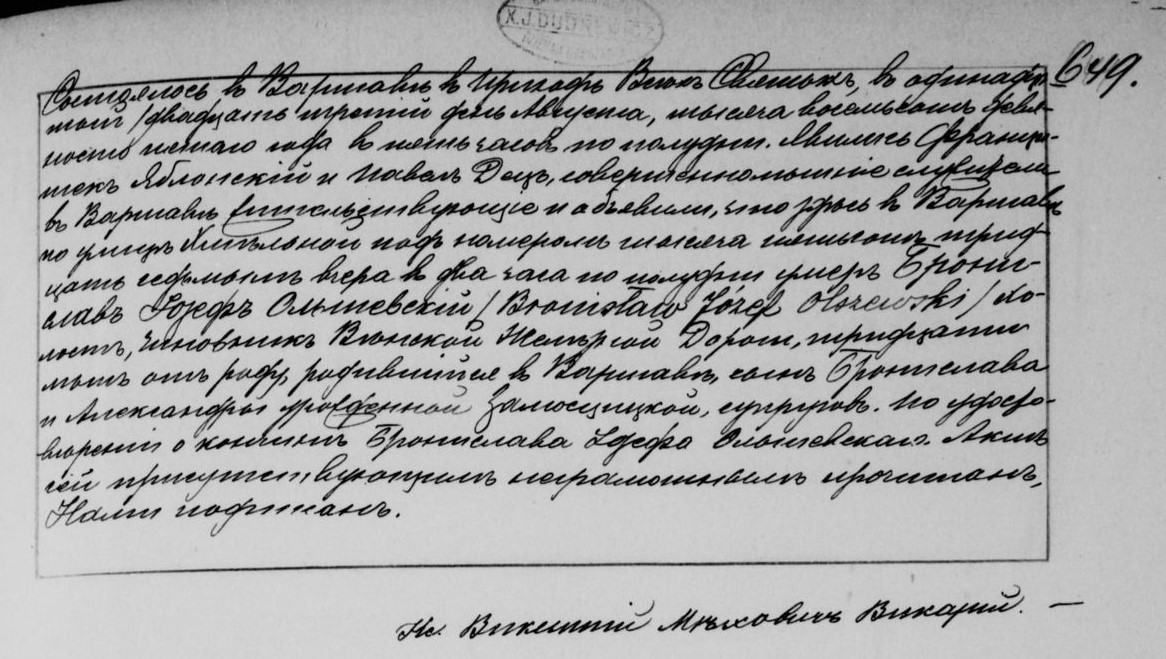 X.J.DUDREWICZ
649.
Состоялось въ Варшавѣ въ Приходѣ Всѣхъ Святыхъ, въ одинадца-
тый /двадцать третій день Августа, тысяча восемьсотъ девя-
носто пятаго года въ пять часовъ по полудни. Явились Францы-
шекъ Яблонскій и Павелъ Децъ, совершеннолѣтніе служители
въ Варшавѣ жительствующіе и объявили, что здѣсь въ Варшавѣ
по улицѣ Хмѣльной подъ номеромъ тысяча пятьсотъ трид-
цать седьмымъ вчера въ два часа по полудни умеръ Брони-
славъ Іозефъ Ольшевскій /Bronisław Józef Olszewski/ хо-
лостъ, чиновникъ Вѣнской Желѣзной Дороги, тридцати
лѣтъ отъ роду, родившійся въ Варшавѣ, сынъ Бронислава
и Александры урожденной супруговъ. По удосто-
вѣреніи о кончинѣ Бронислава Іозефа Ольшевскаго Актъ
сей присутствующимъ неграмотнымъ прочитанъ,
Нами подписанъ.
Кс. Викентій Мѣховичъ Викарій. —